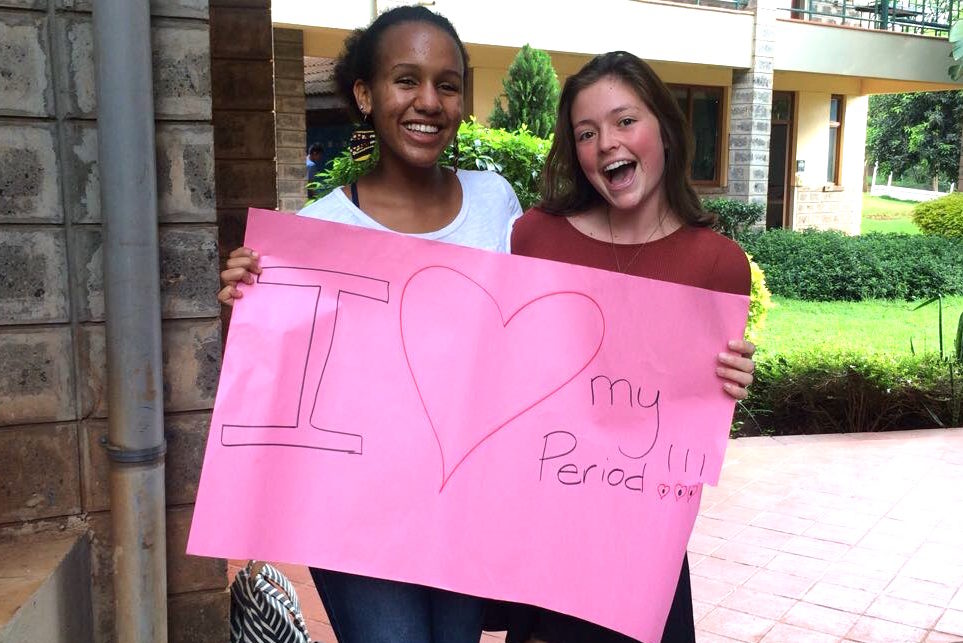 I ♡ my
Period!!!